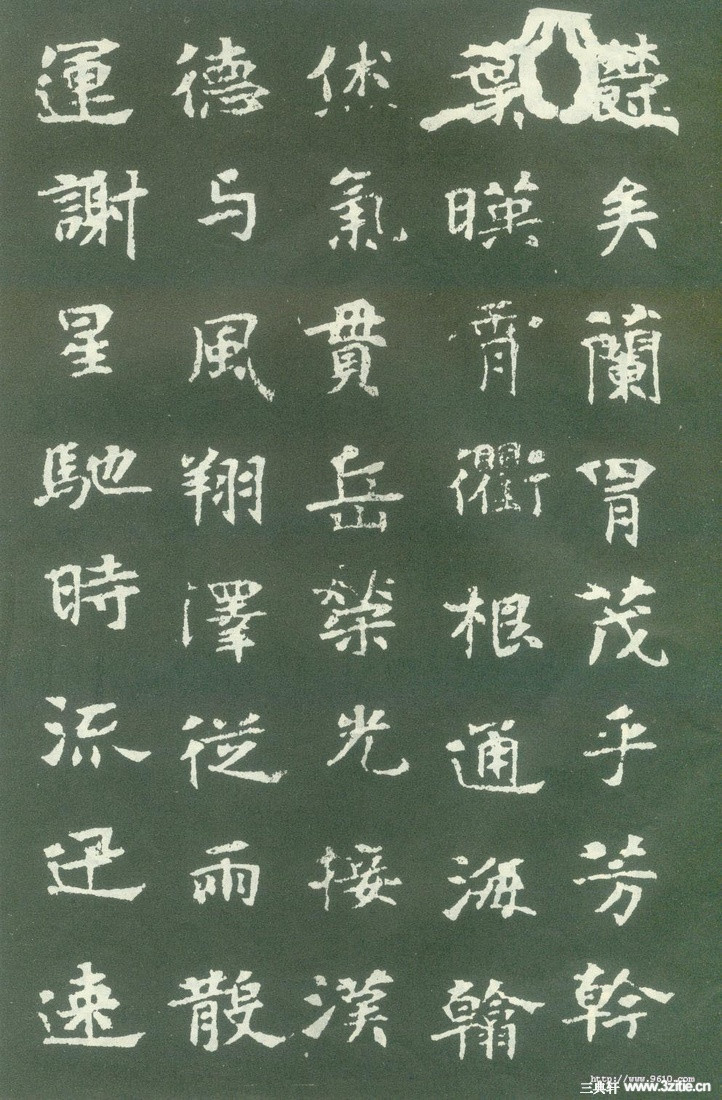 欝矣蘭胄茂乎芳幹
葉暎霄衢根通海翰
烋氣貫岳榮光接漢
德与風翔澤從雨散
運謝星馳時流迅速
http://www.9610.com
三典轩 www.3zitie.cn